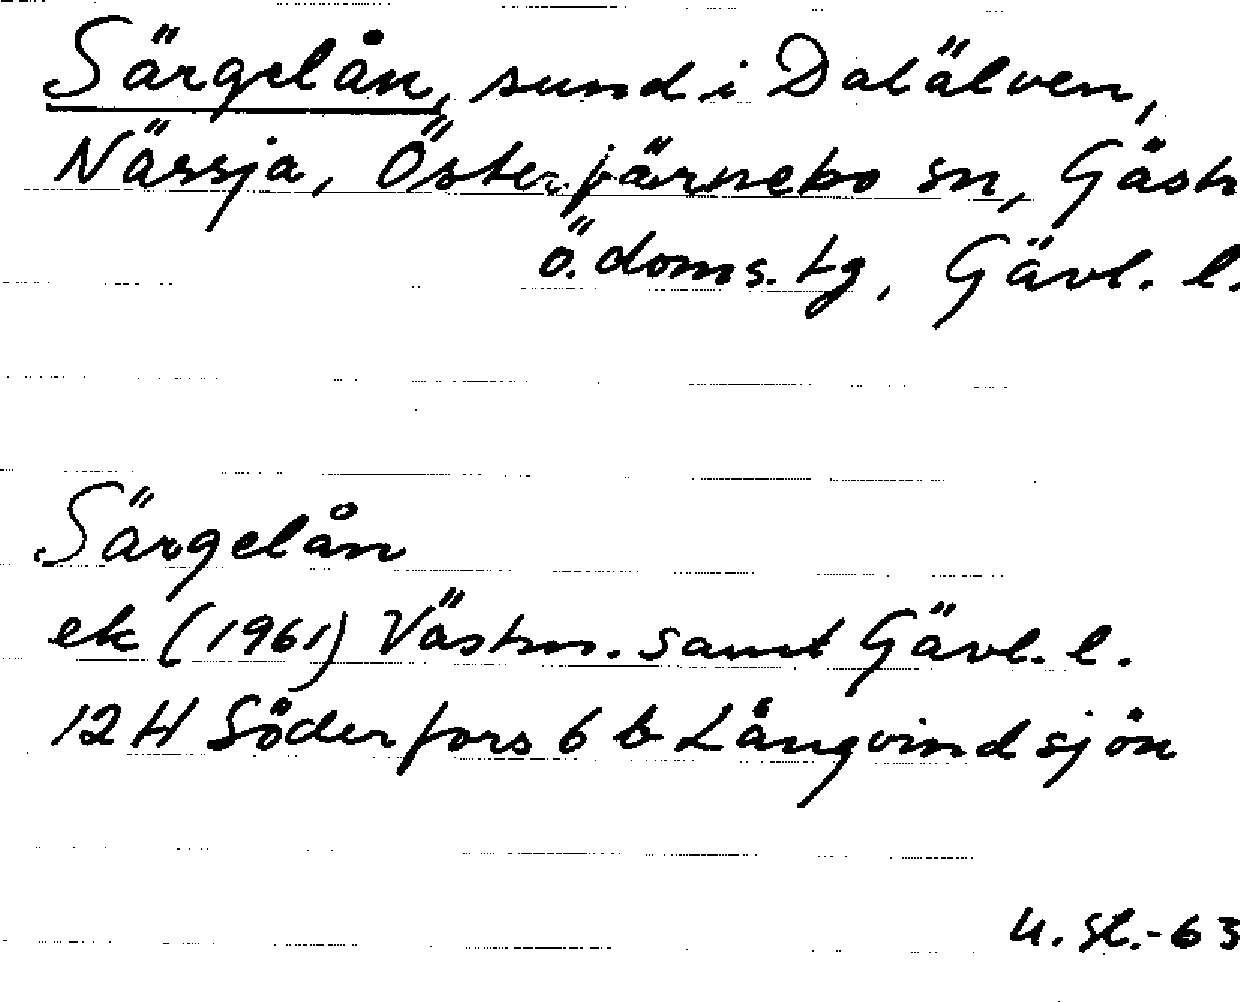 Särgelån, sund i Dalälven,
Nässja, Österfärnebo sn, Gästr
ö. doms. tg, Gävl. l.
Särgelån
ek (1961) Västm. samt Gävl. l.
12 H Söderfors 6 b Långvindsjön
U. Sl. -63